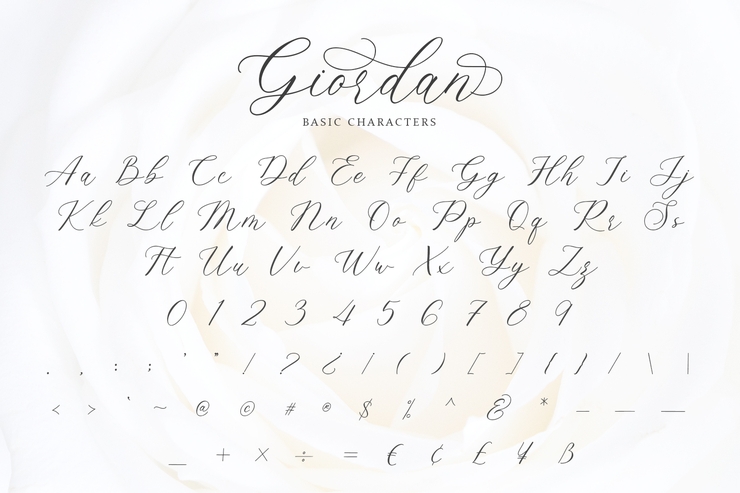 Giordan
BASIC CHARACTERS
Aa Bb Cc Dd Ee Ff Gg Hh Ii Jj
Kk Ll Mm Nn Oo Pp Qq Rr Ss
Tt Uu Vv Ww Xx Yy Zz
0 1 2 3 4 5 6 7 8 9
. , : ; ’ ” ! ? ¿ ¡ ( ) [ ] { } / \ |
< > ‘ ~ @ © # ® $ % ^ & * - – —
_ + × ÷ = € ¢ £ ¥ ß